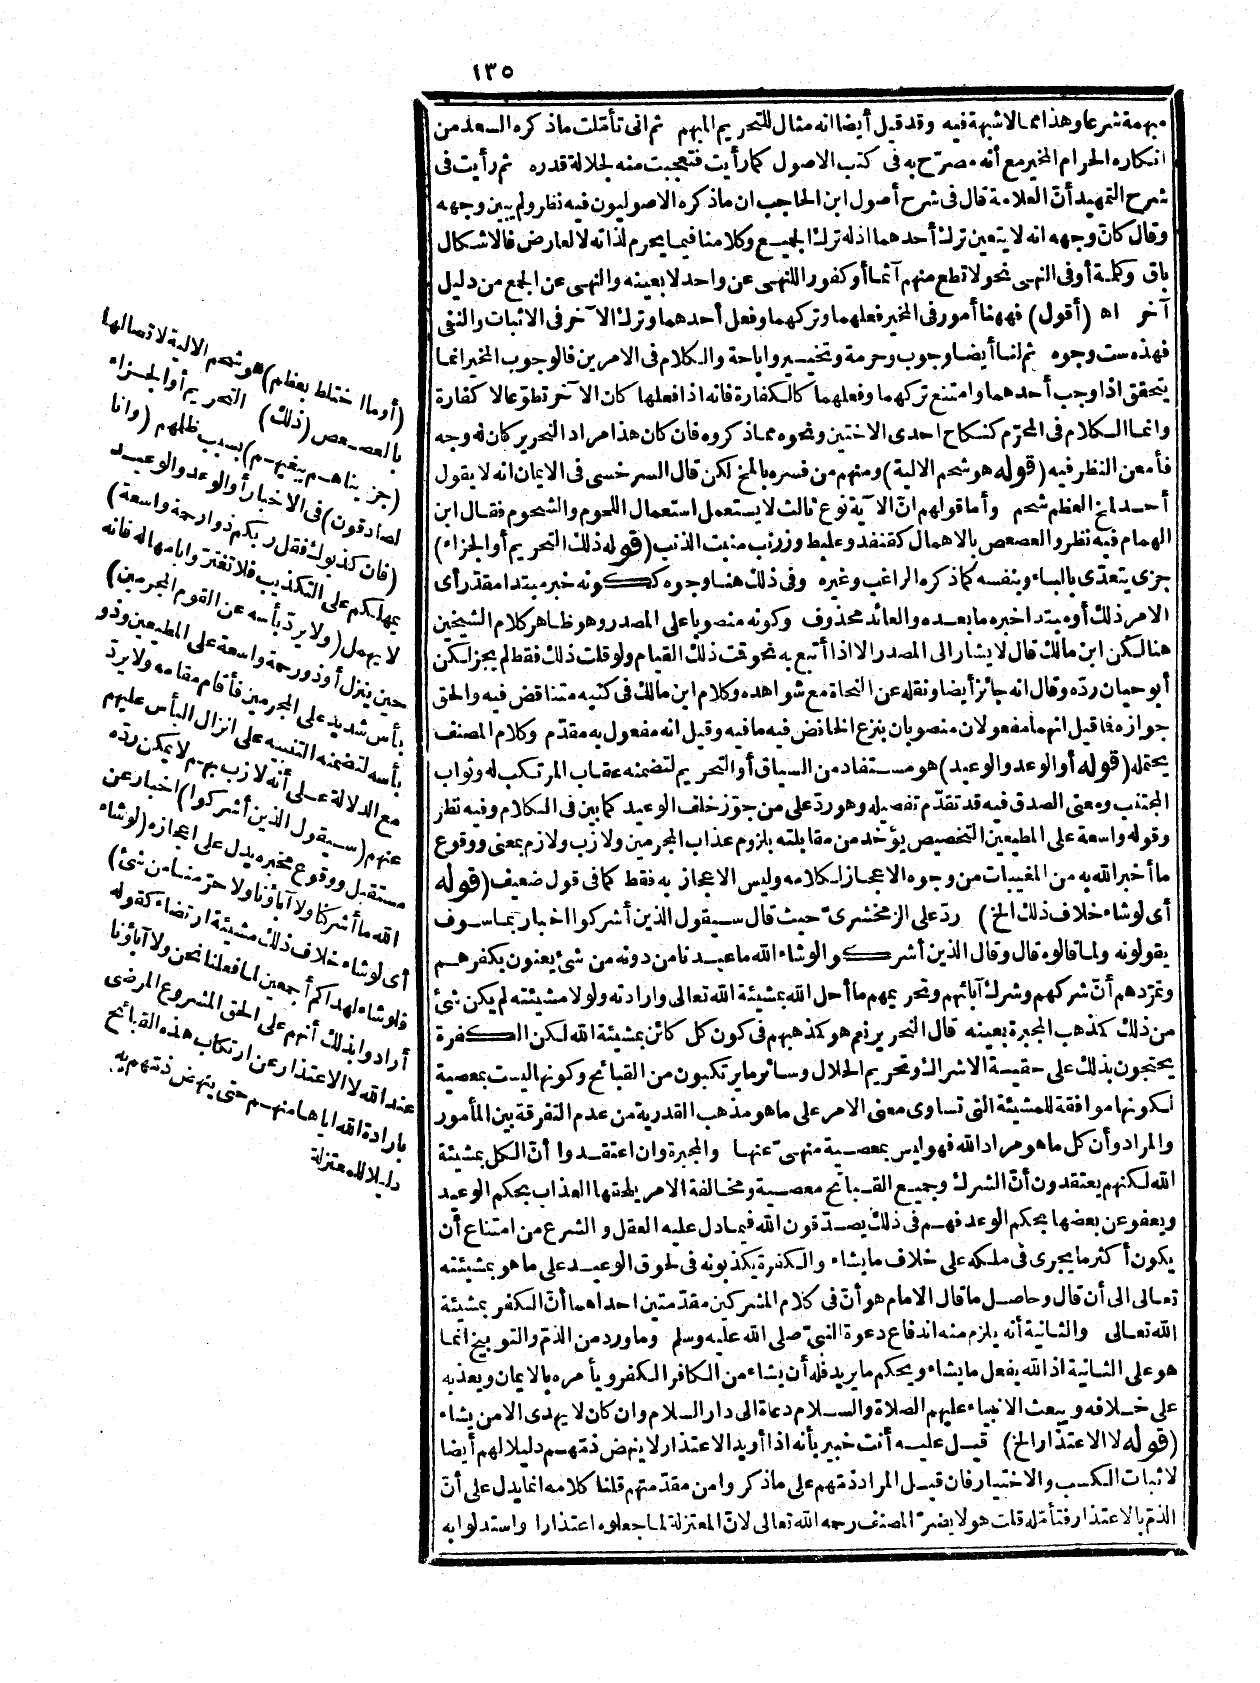 ١٣٥
مبهمة شرعا وهذا مما لا شبهة فيه وقد قيل أيضا انه مثال للتحريم المبهم ثم انى تأملت ما ذكره السعد من
انكاره الحرام المخير مع أنه مصرّح به فى كتب الاصول كما رأيت فتعجبت منه لجلالة قدره ثم رأيت فى
شرح التمهيد أنّ العلامة قال فى شرح أصول ابن الحاجب ان ما ذكره الاصوليون فيه نظر ولم يبين وجهه
وقال كانّ وجهه انه لا يتعين ترك أحدهما اذ له ترك الجميع وكلامنا فيما يحرم لذاته لا لعارض فالاشكال
باق وكلمة أو فى النهى نحو لا تطع منهم آثما أو كفورا للنهى عن واحد لا بعينه والنهى عن الجمع من دليل
آخر اه (أقول) فههنا أمور فى المخير فعلهما وتركهما وفعل أحدهما وترك الآخر فى الاثبات والنفى
فهذه ست وجوه ثم لنا أيضا وجوب وحرمة وتخيير واباحة والكلام فى الامرين فالوجوب المخير انما
يتحقق اذا وجب أحدهما وامتنع تركهما وفعلهما كالكفارة فانه اذا فعلها كان الآخر تطوّعا لا كفارة
وانما الكلام فى المحرّم كنكاح احدى الاختين ونحوه مما ذكروه فان كان هذا مراد التحرير كان له وجه
فأمعن النظر فيه (قوله هو شحم الالية) ومنهم من فسره بالمخ لكن قال السرخسى فى الايمان انه لا يقول
أحد لمخ العظم شحم وأما قولهم انّ الآية نوع ثالث لا يستعمل استعمال اللحوم والشحوم فقال ابن
الهمام فيه نظر والعصعص بالاهمال كقنفذ وعليط وزرنب منبت الذنب (قوله ذلك التحريم أو الجزاء)
جزى يتعدّى بالباء وبنفسه كما ذكره الراغب وغيره وفى ذلك هنا وجوه ككونه خبر مبتدا مقدّر أى
الامر ذلك أو مبتدا خبره ما بعده والعائد محذوف وكونه منصوبا على المصدر وهو ظاهر كلام الشيخين
هنا لكن ابن مالك قال لا يشار الى المصدر الا اذا أتبع به نحو قمت ذلك القيام ولو قلت ذلك فقط لم يجز لكن
أبو حيان ردّه وقال انه جائز أيضا ونقله عن النحاة مع شواهده وكلام ابن مالك فى كتبه متناقض فيه والحق
جوازه فما قيل انهما مفعولان منصوبان بنزع الخافض فيه ما فيه وقيل انه مفعول به مقدّم وكلام المصنف
يحتمله (قوله أو الوعد والوعيد) هو مستفاد من السياق أو التحريم لتضمنه عقاب المرتكب له وثواب
المجتنب ومعنى الصدق فيه قد تقدّم تفصيله وهو ردّ على من جوّز خلف الوعيد كما بين فى الكلام وفيه نظر
وقوله واسعة على المطيعين التخصيص يؤخذ من مقابلته بلزوم عذاب المجرمين ولازب ولازم بمعنى ووقوع
ما أخبر الله به من المغيبات من وجوه الاعجاز لكلامه وليس الاعجاز به فقط كما فى قول ضعيف (قوله
أى لو شاء خلاف ذلك الخ) ردّ على الزمخشرىّ حيث قال سيقول الذين أشركوا اخبار بما سوف
يقولونه ولما قالوه قال وقال الذين أشركوا لو شاء الله ما عبدنا من دونه من شئ يعنون بكفرهم
وتمرّدهم أنّ شركهم وشرك آبائهم وتحريمهم ما أحل الله بمشيئة الله تعالى وارادته ولولا مشيئته لم يكن شئ
من ذلك كمذهب المجبرة بعينه قال النحرير نم هو كمذهبهم فى كون كل كائن بمشيئة الله لكن الكفرة
يحتجون بذلك على حقيقة الاشراك وتحريم الحلال وسائر ما يرتكبون من القبائح وكونها ليست بمعصية
لكونها موافقة للمشيئة التى تساوى معنى الامر على ما هو مذهب القدرية من عدم التفرقة بين المأمور
والمراد وأن كل ما هو مراد الله فهو ليس بمعصية منهىّ عنها والمجبرة وان اعتقدوا أنّ الكل بمشيئة
الله لكنهم يعتقدون أنّ الشرك وجميع القبائح معصية ومخالفة الامر يلحقها العذاب بحكم الوعيد
ويعفو عن بعضها بحكم الوعد فهم فى ذلك يصدّقون الله فيما دل عليه العقل والشرع من امتناع أن
يكون أكثر ما يجرى فى ملكه على خلاف ما يشاء والكفرة يكذبونه فى لحوق الوعيد على ما هو بمشيئته
تعالى الى أن قال وحاصل ما قال الامام هو أنّ فى كلام المشركين مقدّمتين احداهما أنّ الكفر بمشيئة
الله تعالى والثانية أنه يلزم منه اندفاع دعوة النبىّ صلى الله عليه وسلم وما ورد من الذمّ والتوبيخ انما
هو على الثانية اذ الله يفعل ما يشاء ويحكم ما يريد فله أن يشاء من الكافر الكفر ويأمره بالايمان ويعذبه
على خلافه ويبعث الانبياء عليهم الصلاة والسلام دعاة الى دار السلام وان كان لا يهدى الا من يشاء
(قوله لا الاعتذار الخ) قيل عليه أنت خبير بأنه اذا أريد الاعتذار لا ينهض ذمّهم دليلا لهم أيضا
لاثبات الكسب والاختيار فان قيل المراد ذمّهم على ما ذكر وا من مقدّمتهم قلنا كلامه انما يدل على أنّ
الذمّ بالاعتذار فتأمّله قلت هو لا يضرّ المصنف رحمه الله تعالى لانّ المعتزلة لما جعلوه اعتذارا واستدلوا به
(أو ما اختلط بعظم) هو شحم الالية لاتصالها
بالعصعص (ذلك) التحريم أو الجزاء
(جزيناهم ببغيهم) بسبب ظلمهم (وانا
لصادقون) فى الاخبار أو الوعد والوعيد
(فان كذبوك فقل ربكم ذو رحمة واسعة)
يمهلكم على التكذيب فلا تغترّوا بامهاله فانه
لا يهمل (ولا يردّ بأسه عن القوم المجرمين)
حين ينزل أو ذو رحمة واسعة على المطيعين وذو
بأس شديد على المجرمين فأقام مقامه ولا يردّ
بأسه لتضمنه التنبيه على انزال البأس عليهم
مع الدلالة على أنه لازب بهم لا يمكن ردّه
عنهم (سيقول الذين أشركوا) اخبار عن
مستقبل ووقوع مخبره يدل على اعجازه (لو شاء
الله ما أشركنا ولا آباؤنا ولا حرّمنا من شئ)
أى لو شاء خلاف ذلك مشيئة ارتضاء كقوله
فلو شاء لهداكم أجمعين لما فعلنا نحن ولا آباؤنا
أرادوا بذلك أنهم على الحق المشروع المرضى
عند الله لا الاعتذار عن ارتكاب هذه القبائح
بارادة الله اياها منهم حتى ينهض ذمّهم به
دليلا للمعتزلة